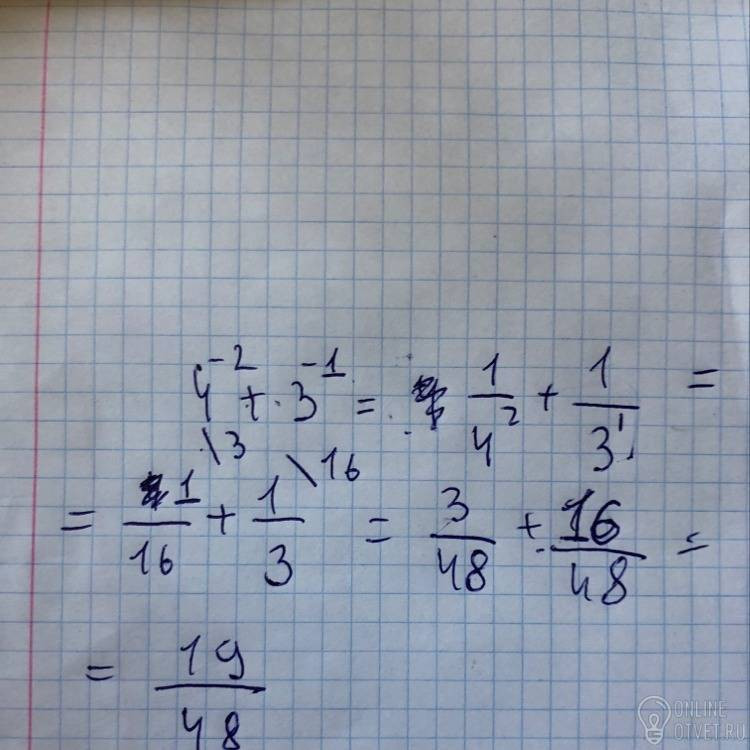 4⁻² + 3⁻¹ = 1/4² + 1/3¹ =
\3 \16
= 1/16 + 1/3 = 3/48 + 16/48 =
= 19/48
ONLINE
OTVET.RU